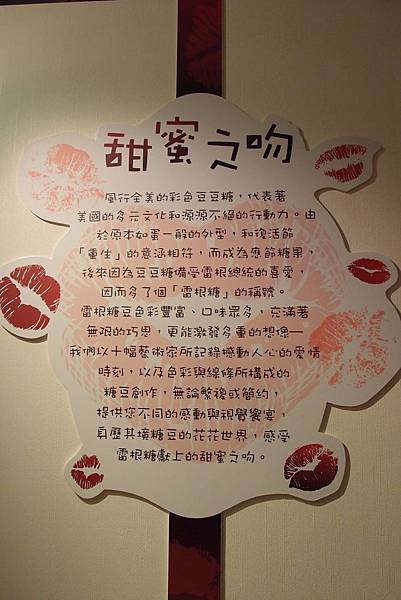 甜蜜之吻
風行全美的彩色豆豆糖，代表著
美國的多元文化和源源不絕的行動力。由
於原本如蛋一般的外型，和復活節
「重生」的意涵相符，而成為應節糖果，
後來因為豆豆糖備受雷根總統的喜愛，
因而多了個「雷根糖」的稱號。
雷根糖豆色彩豐富、口味眾多，充滿著
無限的巧思，更能激發多重的想像—
我們以十幅藝術家所記錄撼動人心的愛情
時刻，以及色彩與線條所構成的
糖豆創作，無論繁複或簡約，
提供您不同的感動與視覺饗宴，
身歷其境糖豆的花花世界，感受
雷根糖獻上的甜蜜之吻。